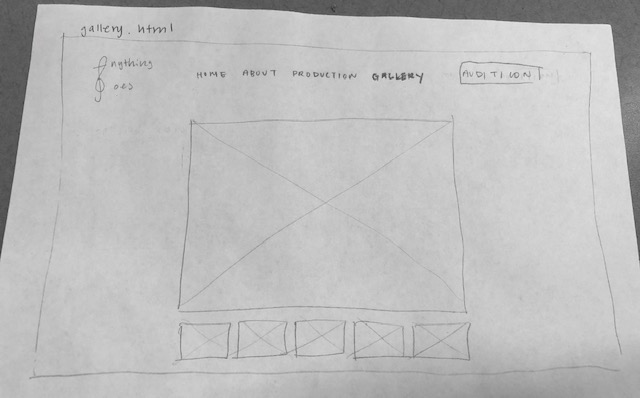 gallery.html
nything
oes
HOME ABOUT PRODUCTION GALLERY AUDITION